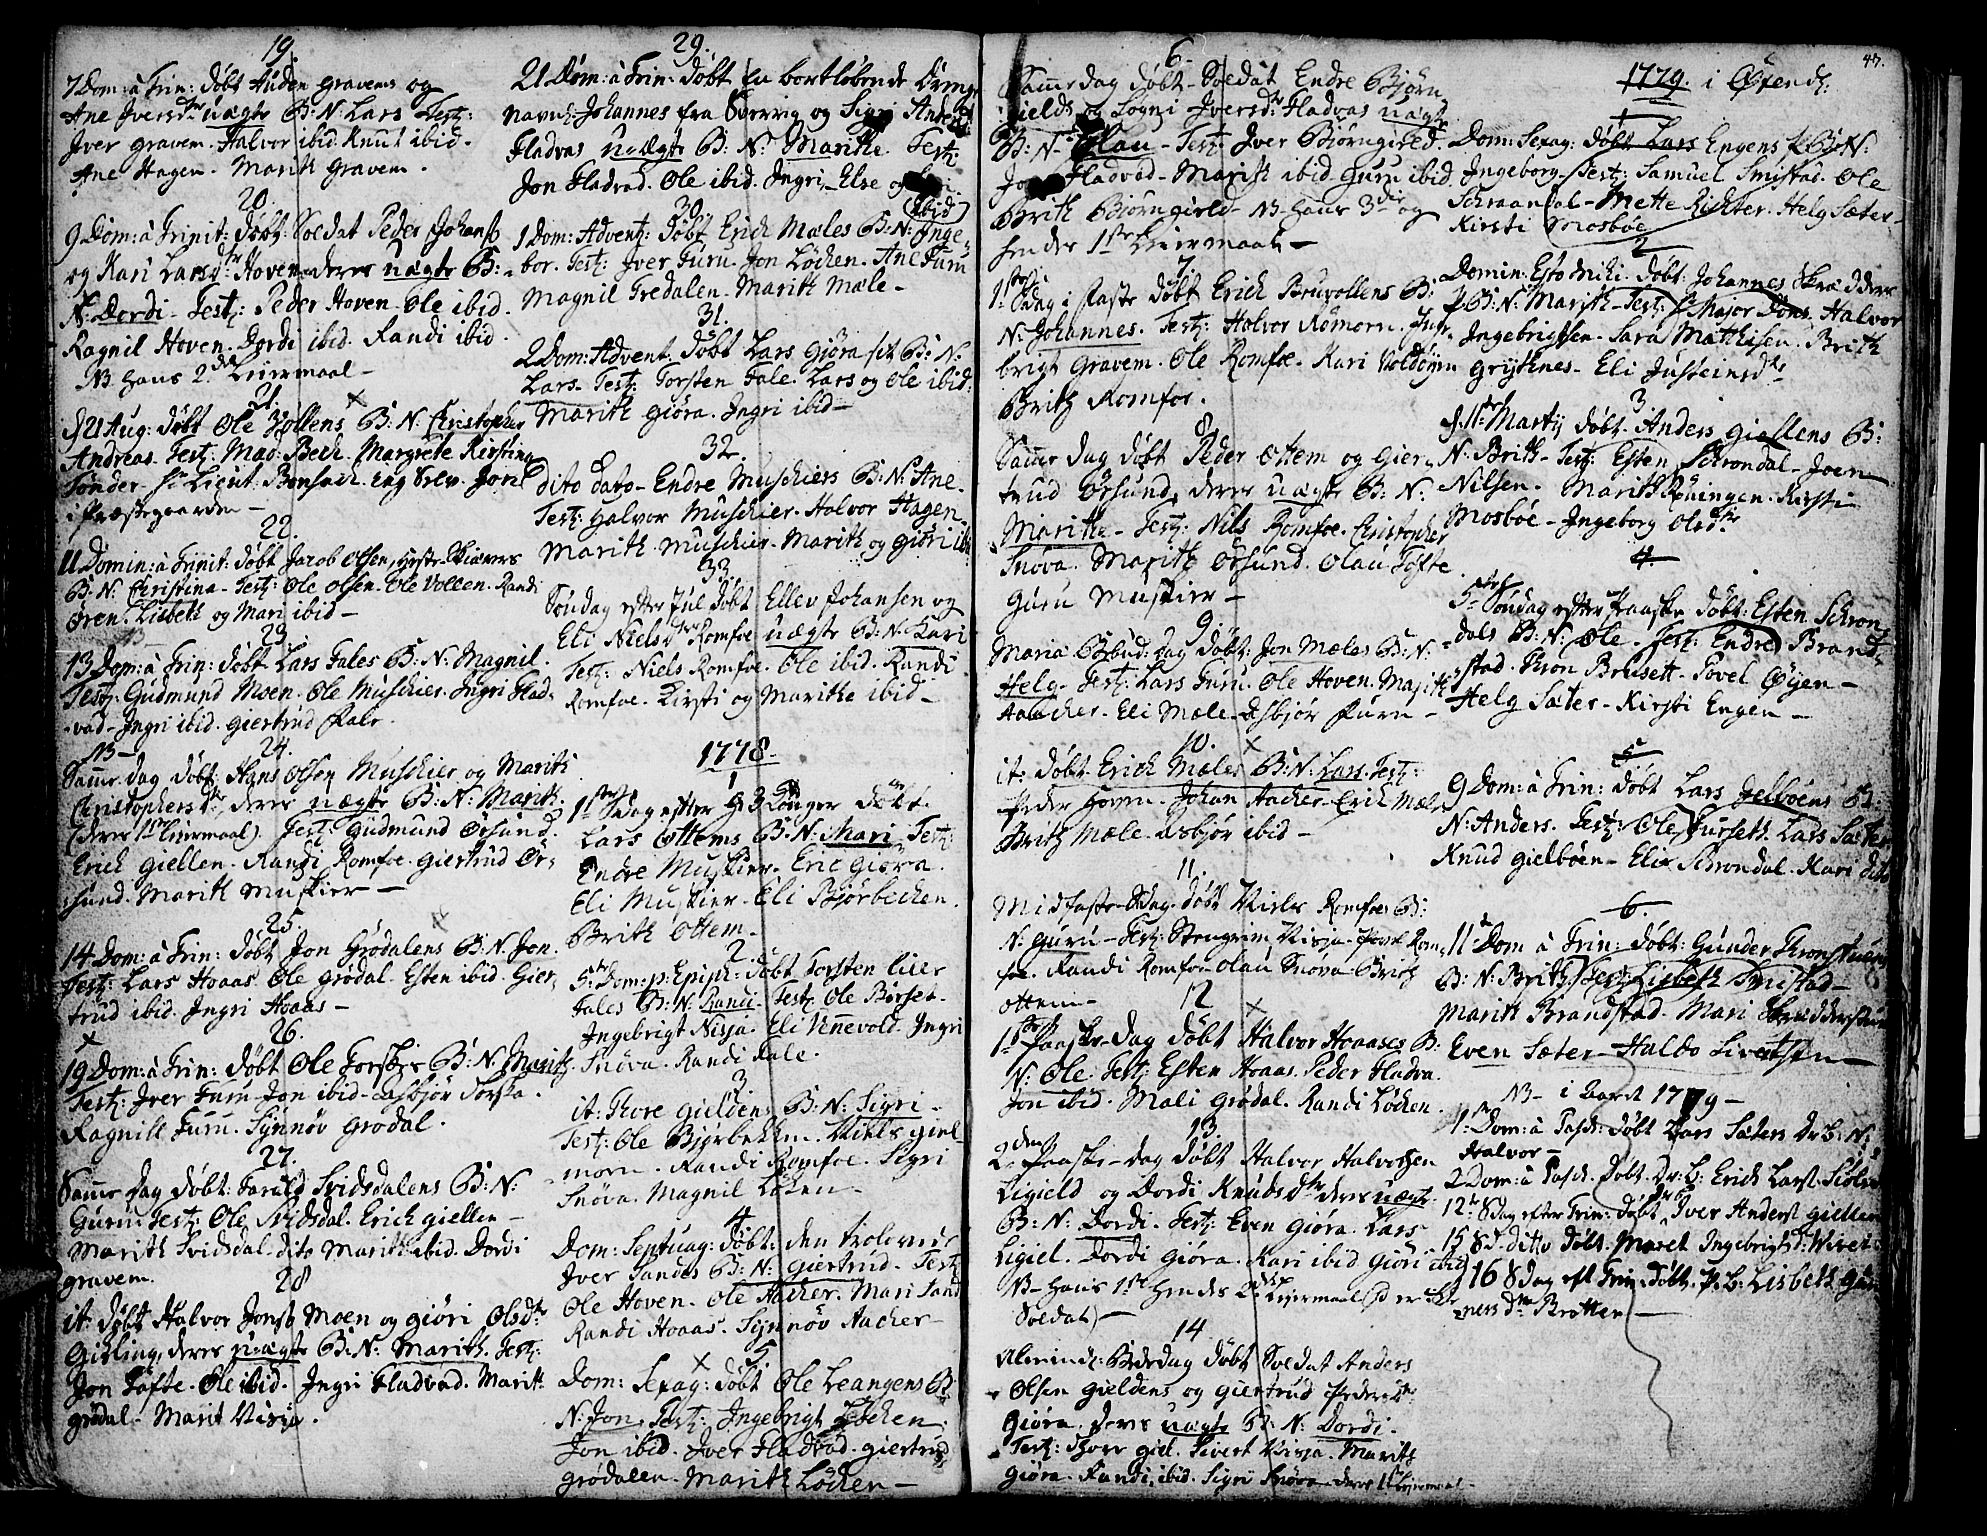 19.
7 Dom: à Trin: døbt Auden gravems og
Ane Iversdtr uægte B: N: Lars Test:
Iver gravem. Halvor ibid. Knut ibid.
Ane Hagen. Marith gravem.
20.
9 Dom: à Trinit: døbt Soldat Peder Johans
og Kari Larsdtr Hoven deres uægte B:
N: Dordi - Test: Peder Hoven. Ole ibid.
Ragnil Hoven. Dordi ibid. Randi ibid.
NB hans 2den Leiermaal -
21.
d 21 Aug: døbt Ole Vollens B: N: Christopher
Andreas. Test: Mad: Bech. Margrete Kirstine
Tønder. Lieut:
i Præstegaarden -
22.
11 Domin: à Trinit: døbt Jacob Olsen
B: N: Christina - Test: Ole Olsen. Ole Vollen. Randi
Øren. Lisbeth og Mari ibid -
23.
13 Dom: à Trin: døbt Lars Fales B: N: Magnil.
Test: Gudmund Moen. Ole Muschier. Ingri Flad-
vad - Ingri ibid. giertrud Fale.
NB -
24.
Samme dag døbt: Hans Olsen Muschier og Marith
Christophersdtr deres uægte B: N: Marith.
(deres 1ste leiermaal) Test: Gudmund Ørsund.
Erich giellen. Randi Romfoe. giertrud Ør-
sund. Marith Muskier -
25.
14 Dom: à Trin: døbt Jon Grødalens B: N: Jon.
Test: Lars Hoaas. Ole grødal. Esten ibid. Gier-
trud ibid. Ingri Hoaas -
26.
19 Dom: à Trin: døbt Ole Torskes B: N: Marith
Test: Iver Furu. Jon ibid. Asbjør Torske.
Ragnill Furu. Synnøv grødal.
27.
Samme dag døbt: Farald Svidsdalens B: N:
Guru. Test: Ole Svidsdal. Erich giellen -
Marith Svidsdal. dito Marith ibid. Dordi
gravem.
28
it: døbt Halvor Jonss Moen og giøri Olsdtr
Gikling, deres uægte B: N: Marith. Test:
Jon Tøfte. Ole ibid. Ingri Fladvad. Marith
grødal - Marit Visja.
29.
21 Dom: à Trin: døbt en bortløbende
navnl: Johannes fra og Sigri
Fladvas uægte B: N: Marithe. Test:
Jon Fladvad. Ole ibid. Ingri, Else og
ibid
30
1 Dom: Advent: døbt Erich Mæles B: N: Inge-
bor. Test: Iver Furu. Jon Løchen. Ane Furu
Magnil Tredalen - Marith Mæle -
31.
2 Dom: Advent. døbt Lars Giøra B: N:
Lars - Test: Torsten Fale. Lars og Ole ibid.
Marith giøra. Ingri ibid -
32.
dito dato - Endre Muschiers B: N: Ane.
Test: Halvor Muschier. Halvor Hagen.
Marith Muschier - Marith og giøri ibid
33
Søndag efter Jul døbt Ellev Johansen og
Eli Nielsdtr Romfoe uægte B: N: Kari
Test: Niels Romfoe. Ole ibid. Randi
Romfoe. Kirsti og Marithe ibid -
1778.
1
1ste Sdag efter H 3 Konger døbt
Lars Ottems B: N: Mari - Test:
Endre Muskier - Eric Giøra.
Eli Muskier - Eli Bjørbechen.
Brith Ottem -
2.
5te Dom: p: Epiph: døbt Torsten
Fales B: N: Randi - Test: Ole Børset -
Ingebrigt Nisja. Eli Unnevold. Ingri
Snøva. Randi Fale.
3
it: Thore gieldens B: N: Sigri -
Test: Ole Bjørbekken. Niels giel
morn. Randi Romfoe. Sigri
Snøva. Magnil Løchen -
4
Dom: Septuag: døbt: den trolovede
Iver Sandes B: N: giertrud - Test:
Ole Hoven. Ole Aacher. Mari Sand
Randi Hoaas. Synnøv Aacher -
5
Dom: Sexag: døbt Ole Leangens B:
N: Jon, Test: Ingebrigt Løchen.
Jon ibid. Iver Fladvad. giertrud
grødalen. Marith Løchen -
6
Samme dag døbt - Soldat Endre Bjørn
gields og Sogni Iversdtr Fladvas uægte
B: N: Olau - Test: Iver Bjørngield.
Fladvad - Marith ibid. Guru ibid
Brith Bjørngield - NB hans 3die og
hendes 1ste Leiermaal -
7
1ste Sdag i Faste døbt Erich Brusollens B:
N: Johannes. Test: Halvor Rømorn. Inge-
brigt Gravem. Ole Romfoe. Kari Voldøyen
Brith Romfoe.
8
Samme dag døbt Peder Ottem og Gier-
trud Ørsund, deres uægte B: N:
Marithe - Test: Nils Romfoe. Christopher
Snøva. Marith Ørsund. Olau Tøfte
Guru Muskier -
9.
Maria Bebud: dag døbt: Jon Mæles B: N:
Helg. Test: Lars Furu. Ole Hoven. Marith
Aacher. Eli Mæle - Asbjør Furu -
10.
it: døbt Erich Mæles B: N: Lars. Test:
Peder Hoven. Johan Aacher. Erich Mæle
Brith Mæle. Asbjør ibid -
11.
Midfaste Sdag døbt Niels Romfoes B:
N: Guru - Test: Stengrim Visja. Povel Rom-
foe. Randi Romfoe. Olau Snøva - Brith
Ottem -
12
1ste Paaske-dag døbt Halvor Hoaases B:
N: Ole. Test: Esten Hoaas. Peder Fladva.
Jon ibid. Mali Grødal. Randi Løchen.
13.
2den Paaske-dag døbt Halvor Halvorsen
Ligield og Dordi Knudsdtr deres uægte
B: N: Dordi. Test: Even Giøra. Lars
Ligiel. Dordi giøra. Kari ibid. Giøri ibid
NB hans 1ste hendes 2det Leiermaal (d er
Soldat) -
14
Alminde: Bededag døbt Soldat Anders
Olsen gieldens og giertrud Pedersdtr
Giøra. deres uægte B: N: Dordi.
Test: Thore giel. Sivert Visja. Marith
giøra. Randi ibid. Sigri Snøva - deres 1ste Leiermaal -
47.
1779. i Øxend:
1
Dom: Sexag: døbt Lars Engens B: N:
Ingeborg - Test: Samuel Smistad. Ole
Schraandal - Mette Richter. Helg Sæter -
Kirsti Mosbøe
2
Domin: Esto mihi. døbt: Johannes Skrædders
B: N: Marith - Test: Major Dons. Halvor
Ingebrigtsen - Sara Matthisen. Brith
Grytknes - Eli Justeinsdtr
3
d. 11te Martij døbt. Anders giellens B:
N: Brith - Test: Esten Schrondal - Joen
Nilsen. Marith Røningen. Kirsti
Mosbøe - Ingeborg Olsdtr
4
5te Søndag efter Paaske døbt: Esten Schron-
dals B: N: Ole - Test: Endre Brand-
stad. Thron Brusett - Povel Øyen -
Helg Sæter - Kirsti Engen -
5
9 Dom: à Trin: døbt Lars Gielbøens B:
N: Anders. Test: Ole Furseth. Lars Sæter
Knud gielbøen - Elie Schrondal. Kari dito
6.
11 Dom à Trin: døbt: Gunder
B: N: Brith. Test: Lisbeth Smistad -
Marith Brandstad - Mari
Even Sæter - Haldo Sivertsen -
NB - i Aaret 1779 -
1. Dom: à Pasch: døbt Lars Sæters Dr: B: N:
Halvor -
2 Dom: à Pasch. døbt. Dr: B: Erich Lars.
12te Sdag efter Trin: døbt Iver Anders giellen
15 Sd. ditto døbt. Maret Ingebrigtsd:
16 Sdag eft Trin: døbt. P: B: Lisbeth Gun
nersdtr Bratten -